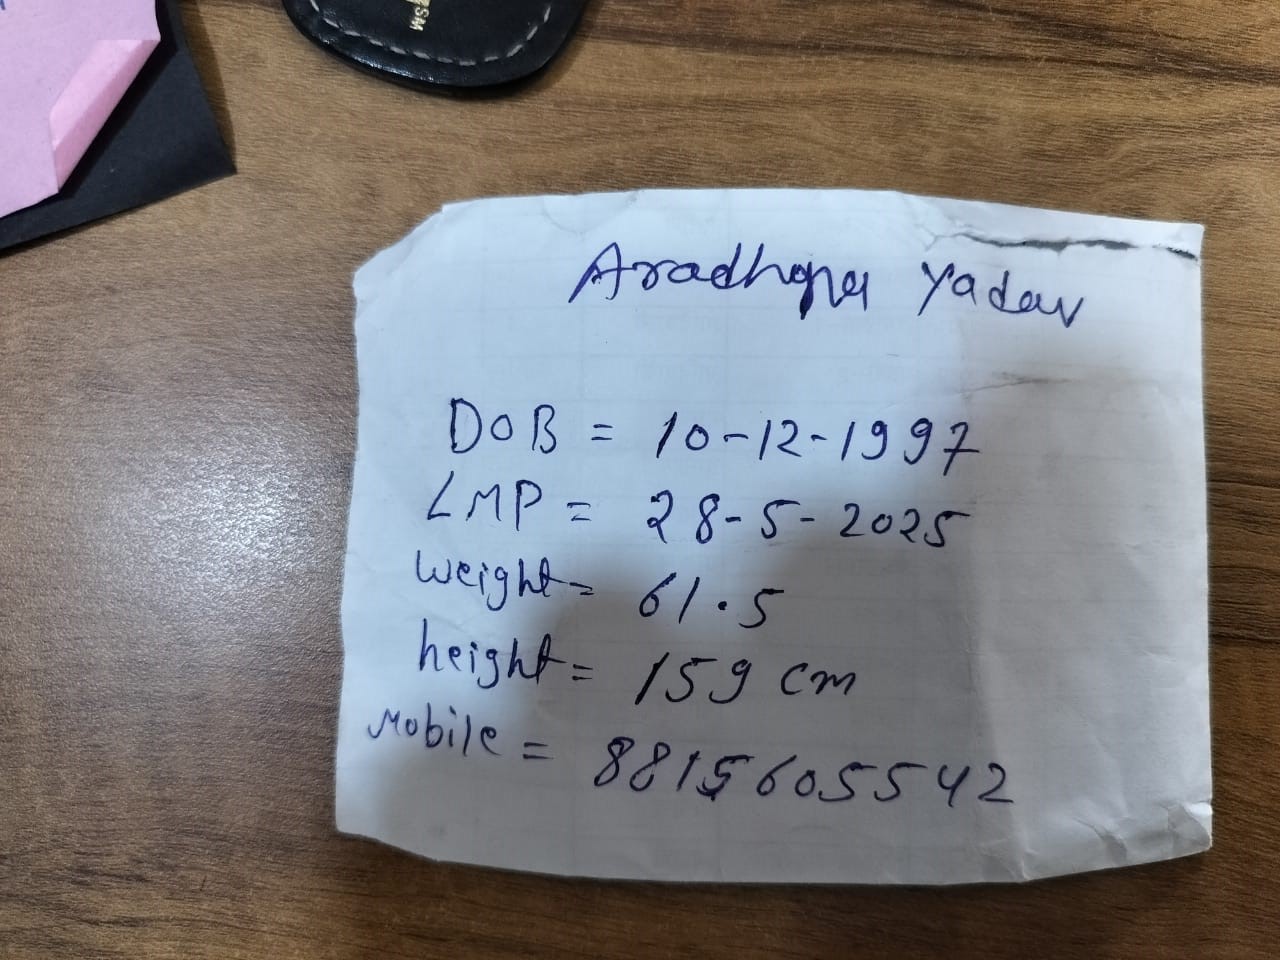 SM
Aradhana Yadav
DOB = 10-12-1997
LMP = 28-5-2025
weight = 61.5
height = 159 cm
Mobile = 88156055542